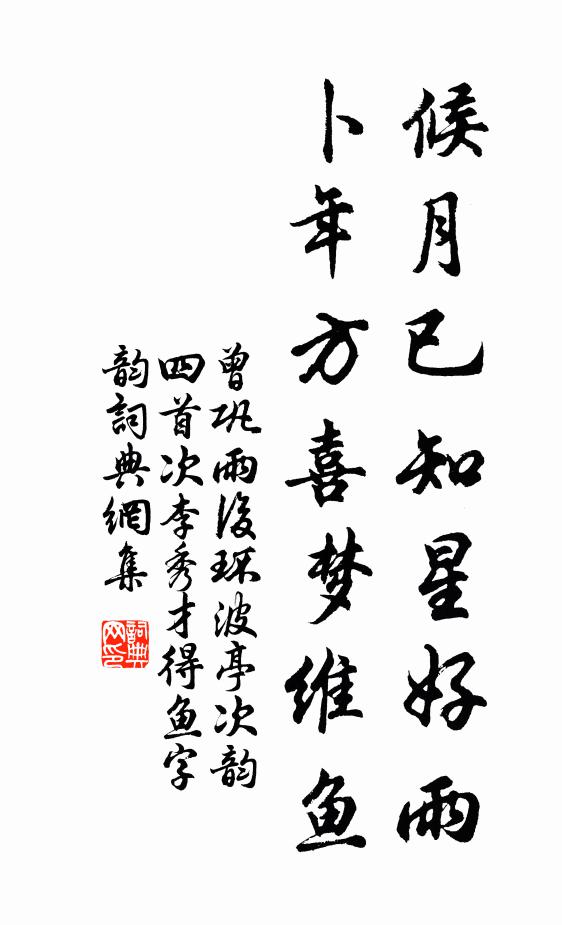 候月已知星好雨
卜年方喜梦维鱼
曾巩雨後环波亭次韵
四首次李秀才得鱼字
韵詞典網集
詞典
网印